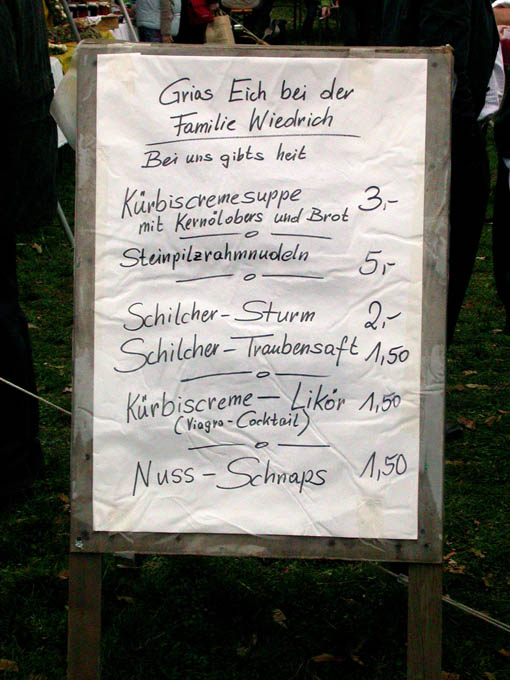 Grias Eich bei der
Familie Wiedrich
Bei uns gibts heit
Kürbiscremesuppe 3,-
mit Kernölobers und Brot
Steinpilzrahmnudeln 5,-
Schilcher-Sturm 2,-
Schilcher-Traubensaft 1,50
Kürbiscreme-Likör 1,50
(Viagra-Cocktail)
Nuss-Schnaps 1,50